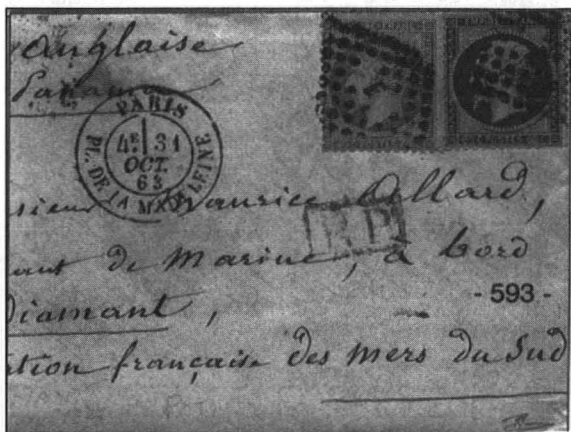 anglaise
Panama
PARIS
4E 31
OCT.
63
PL. DE LA MADELEINE
sieur Maurice Allard,
ant de Marine, à bord
- 593 -
Diamant,
tion française des mers du Sud